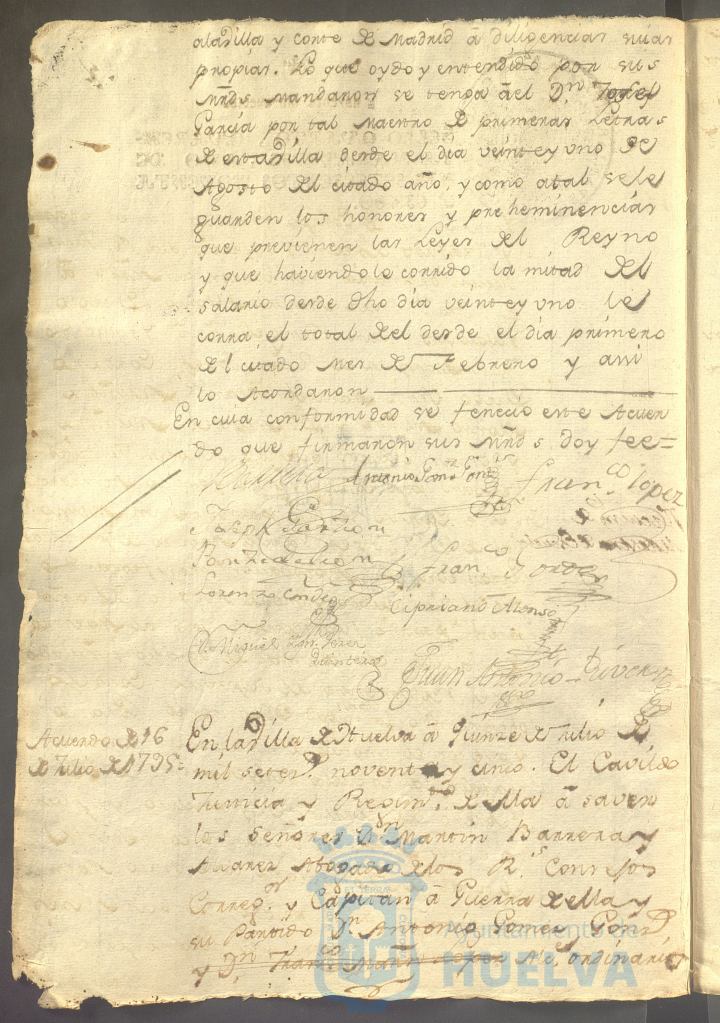 alavilla y corte de Madrid a diligencias suias
propias. Lo que oydo y entendido por sus
Mrds mandaron se tenga âel Dn Josef
Garcia por tal Maestro de primeras Letras
de estavilla desde el dia veinte y uno de
Agosto del citado año, y como atal sele
guarden los honores y preheminencias
que previenen las Leyes del Reyno
y que haviendole corrido la mitad del
salario desde dho dia veinte y uno le
corra el total del desde el dia primero
del citado mes de Febrero y assi
lo Acordaron
En cuia conformidad se feneció este Acuer
do que firmaron sus Mrds doy fee=
Barrera Antonio Gomz Gonz Franco Lopez
Joseph Garzon
Ponze de Leon Franco Jorder
Lorenzo Conde
Cipriano Alonso
Miguel Perez
Quintero
Juan Antonio Rivera
Acuerdo de 16
de Julio de 1795=
En lavilla de Huelva â quinze de Julio de
mil setezs noventa y cinco. El Cavildo
Justicia y Regimto de ella â saver
los señores Dn Martin Barrera y
Alvarez Abogado de los Rs Consejos
Corregor y Capitan â Guerra de ella y
su Partido Dn Antonio Gomez Gonz
y Dn Franco Mañn Lopez Alces ordinarios
Ayuntamiento de
HUELVA